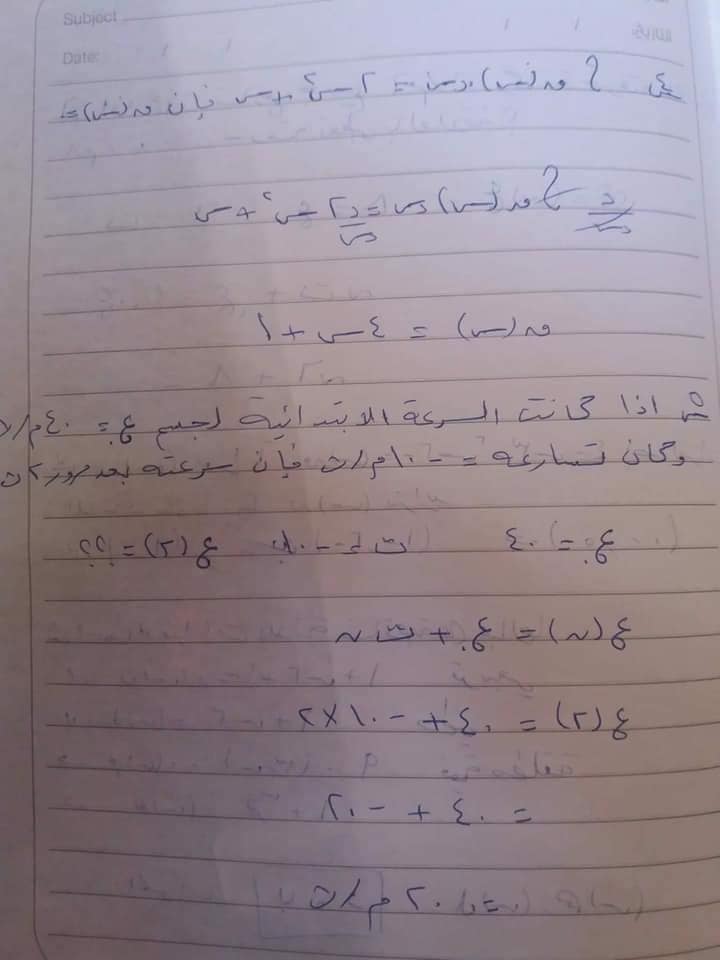 Subject
Date: / /
س٤ ∫ ق(س).دس = ٢س² + س فإن ق(س) =
د/دس ∫ ق(س) دس = د/دس ٢س² + س
ق(س) = ٤س + ١
س٥ اذا كانت السرعة الابتدائية لجسم ع. = ٤٠ م/ث
وكان تسارعه = -١٠ م/ث فإن سرعته بعد مرور ٢ث
ع. = ٤٠ ت = -١٠ ع(٢) = ؟؟
ع(ن) = ع. + ت ن
ع(٢) = ٤٠ + -١٠ × ٢
= ٤٠ + -٢٠
= ٢٠ م/ث